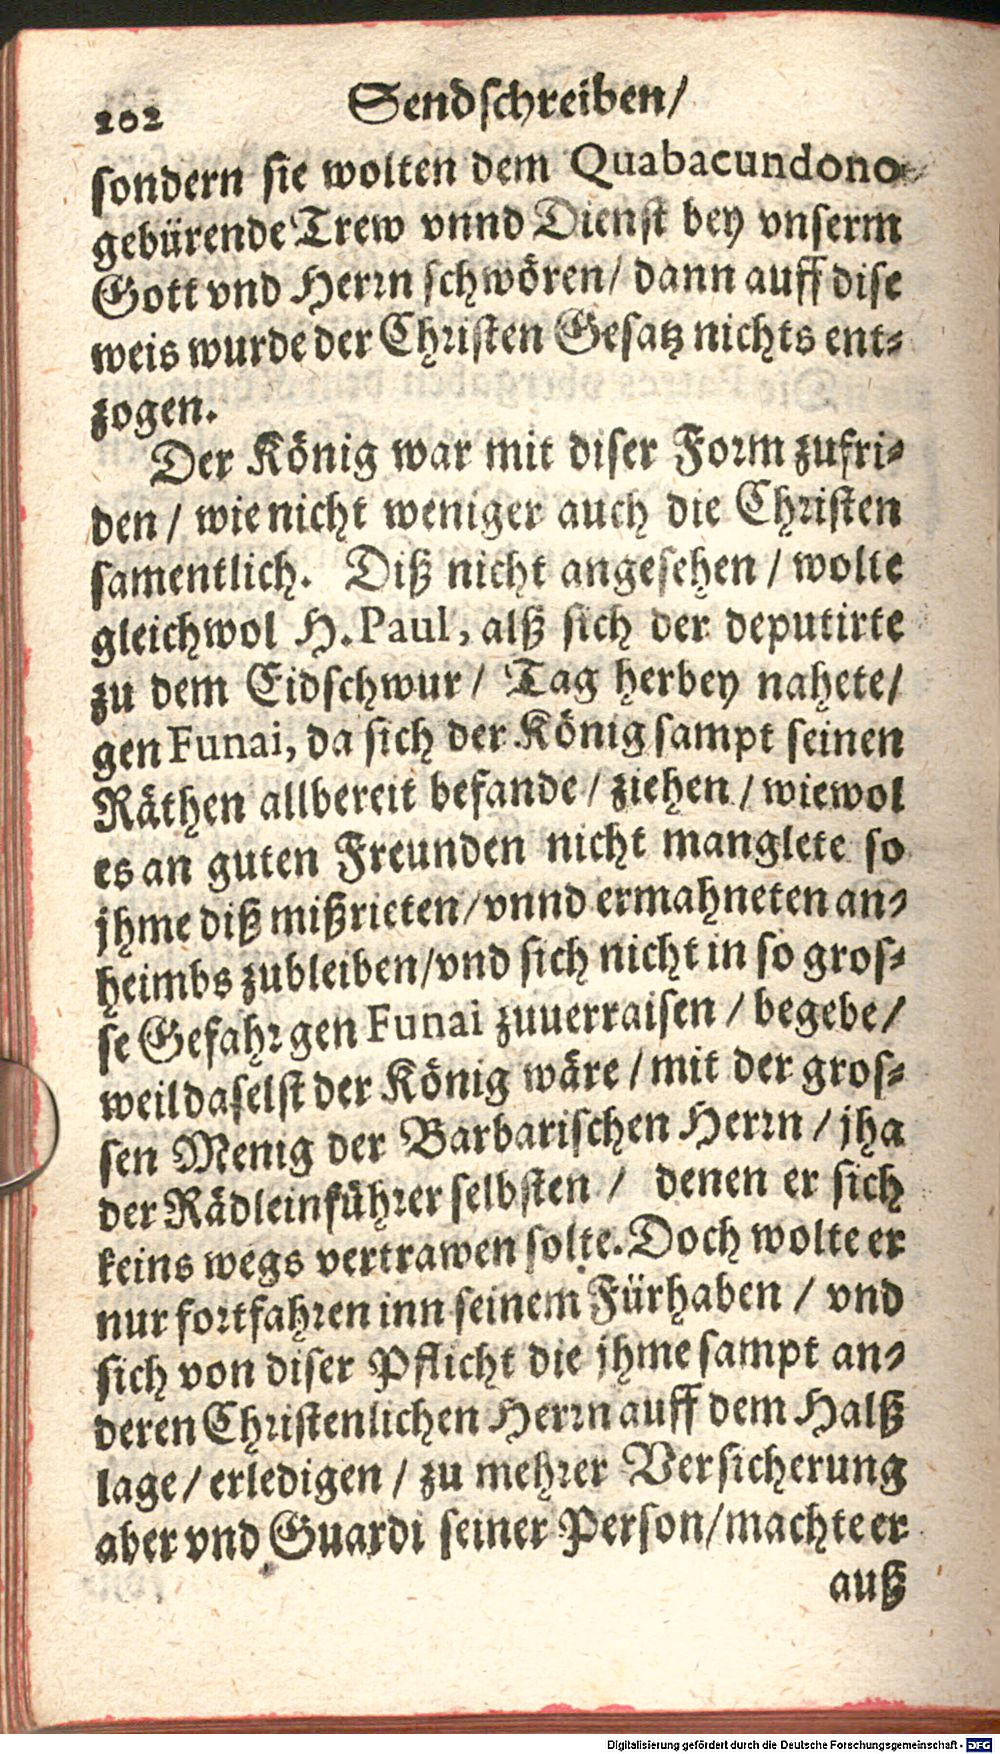 202 Sendschreiben/
sondern sie wolten dem Quabacundono
gebürende Trew vnnd Dienst bey vnserm
Gott vnd Herrn schwören/ dann auff dise
weis wurde der Christen Gesatz nichts ent-
zogen.
Der König war mit diser Form zufri-
den/ wie nicht weniger auch die Christen
samentlich. Diß nicht angesehen/ wolte
gleichwol H. Paul, alß sich der deputirte
zu dem Eidschwur/ Tag herbey nahete/
gen Funai, da sich der König sampt seinen
Räthen allbereit befande/ ziehen/ wiewol
es an guten Freunden nicht manglete so
jhme diß mißrieten/ vnnd ermahneten an-
heimbs zubleiben/ vnd sich nicht in so gros-
se Gefahr gen Funai zuuerraisen/ begebe/
weil daselst der König wäre/ mit der gros-
sen Menig der Barbarischen Herrn/ jha
der Rädleinführer selbsten/ denen er sich
keins wegs vertrawen solte. Doch wolte er
nur fortfahren inn seinem Fürhaben/ vnd
sich von diser Pflicht die jhme sampt an-
deren Christenlichen Herrn auff dem Halß
lage/ erledigen/ zu mehrer Versicherung
aber vnd Guardi seiner Person/ machte er
auß
Digitalisierung gefördert durch die Deutsche Forschungsgemeinschaft - DFG